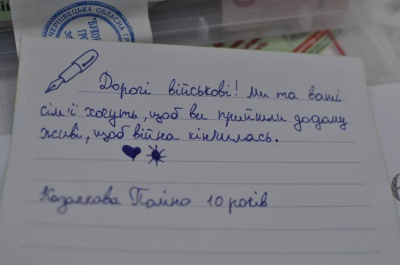 ЧЕРНІВЕЦЬКА ОБЛАСНА
Дорогі військові! Ми та ваші
сім'ї хочуть, щоб ви прийшли додому
живі, щоб війна кінчилась.
Казакова Поліна 10 років